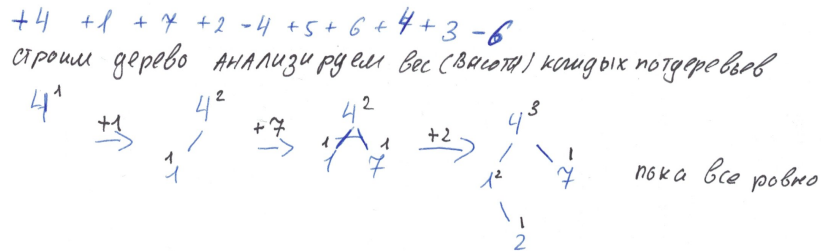 +4 +1 +7 +2 -4 +5 +6 +4 +3 -6
строим дерево анализируем вес (высота) каждых потдеревьев
4¹ +1 4² 1¹ +7 4² 1¹ 7¹ +2 4³ 1² 7¹ 2¹
пока все ровно